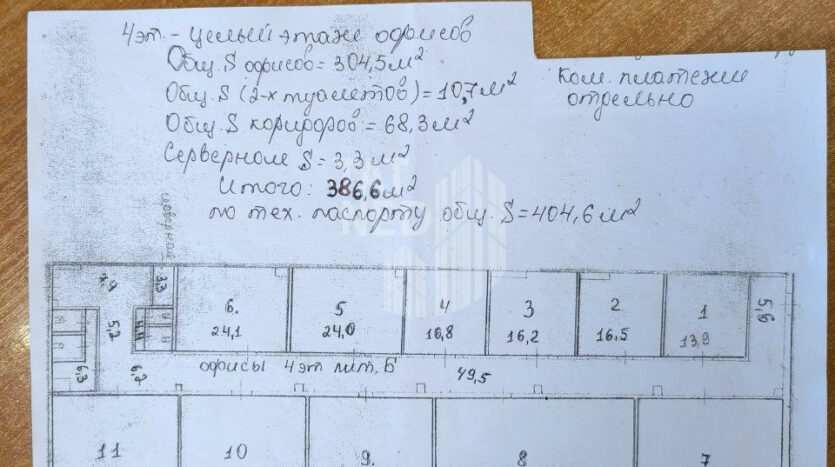 4эт. - целый этаж офисов
Общ. S офисов = 304,5м²
Общ. S (2-х туалетов) = 10,7м²
Общ. S коридоров = 68,3м²
Серверной S = 3,3м²
Итого: 386,6м²
по тех. паспорту общ. S = 404,6м²
Ком. платежи
отдельно
серверная
7,4
3,3
6.
24,1
5
24,0
4
16,8
3
16,2
2
16,5
1
13,9
5,6
5,2
4,4
6,3
6,2
офисы 4эт лит. Б
49,5
11
10
9.
8
7